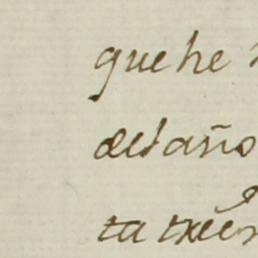 que he
del año
ta tres